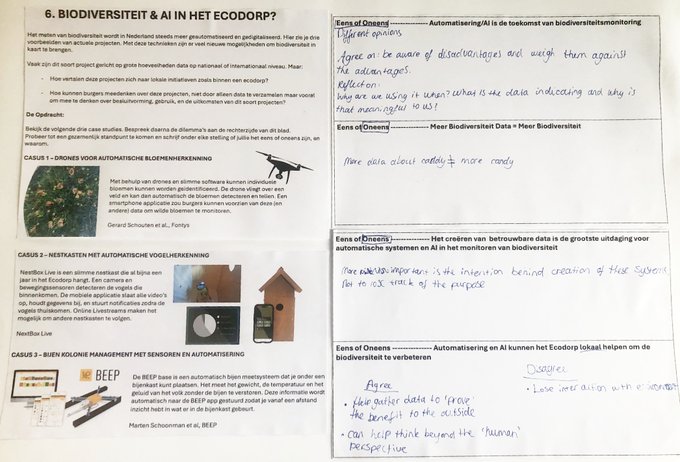 6. BIODIVERSITEIT & AI IN HET ECODORP?
Het meten van biodiversiteit wordt in Nederland steeds meer geautomatiseerd en gedigitaliseerd. Hier zie je drie
voorbeelden van actuele projecten. Met deze technieken zijn er veel nieuwe mogelijkheden om biodiversiteit in
kaart te brengen.
Vaak zijn dit soort project gericht op grote hoeveelheden data op nationaal of internationaal niveau. Maar:
- Hoe vertalen deze projecten zich naar lokale initiatieven zoals binnen een ecodorp?
- Hoe kunnen burgers meedenken over deze projecten, niet door alleen data te verzamelen maar vooral
om mee te denken over besluitvorming, gebruik, en de uitkomsten van dit soort projecten?
De Opdracht:
Bekijk de volgende drie case studies. Bespreek daarna de dilemma's aan de rechterzijde van dit blad.
Probeer tot een gezamenlijk standpunt te komen en schrijf onder elke stelling of jullie het eens of oneens zijn, en
waarom.
CASUS 1 – DRONES VOOR AUTOMATISCHE BLOEMENHERKENNING
Met behulp van drones en slimme software kunnen individuele
bloemen kunnen worden geïdentificeerd. De drone vliegt over een
veld en kan dan automatisch de bloemen detecteren en tellen. Een
smartphone applicatie zou burgers kunnen voorzien van deze (en
andere) data om wilde bloemen te monitoren.
Gerard Schouten et al., Fontys
CASUS 2 – NESTKASTEN MET AUTOMATISCHE VOGELHERKENNING
NestBox Live is een slimme nestkast die al bijna een
jaar in het Ecodorp hangt. Een camera en
bewegingssensoren detecteren de vogels die
binnenkomen. De mobiele applicatie slaat alle video's
op, houdt gegevens bij, en stuurt notificaties zodra de
vogels thuiskomen. Online Livestreams maken het
mogelijk om andere nestkasten te volgen.
NextBox Live
CASUS 3 – BIJEN KOLONIE MANAGEMENT MET SENSOREN EN AUTOMATISERING
BEEP
De BEEP base is een automatisch bijen meetsysteem dat je onder een
bijenkast kunt plaatsen. Het meet het gewicht, de temperatuur en het
geluid van het volk zonder de bijen te verstoren. Deze informatie wordt
automatisch naar de BEEP app gestuurd zodat je vanaf een afstand
inzicht hebt in wat er in de bijenkast gebeurt.
Marten Schoonman et al, BEEP
Eens of Oneens ---------------- Automatisering/AI is de toekomst van biodiversiteitsmonitoring
Different opinions
Agree on: be aware of disadvantages and weigh them against
the advantages.
Reflection:
Why are we using it when? What is the data indicating and why is
that meaningful to us?
Eens of Oneens ---------------- Meer Biodiversiteit Data = Meer Biodiversiteit
More data about candy ≠ more candy
Eens of Oneens ---------------- Het creëren van betrouwbare data is de grootste uitdaging voor
automatische systemen en AI in het monitoren van biodiversiteit
More important is the intention behind creation of these systems
Not to lose track of the purpose
Eens of Oneens ---------------- Automatisering en AI kunnen het Ecodorp lokaal helpen om de
biodiversiteit te verbeteren
Agree
• Help gather data to 'prove'
the benefit to the outside
• can help think beyond the 'human'
perspective
Disagree
• Lose interaction with environment